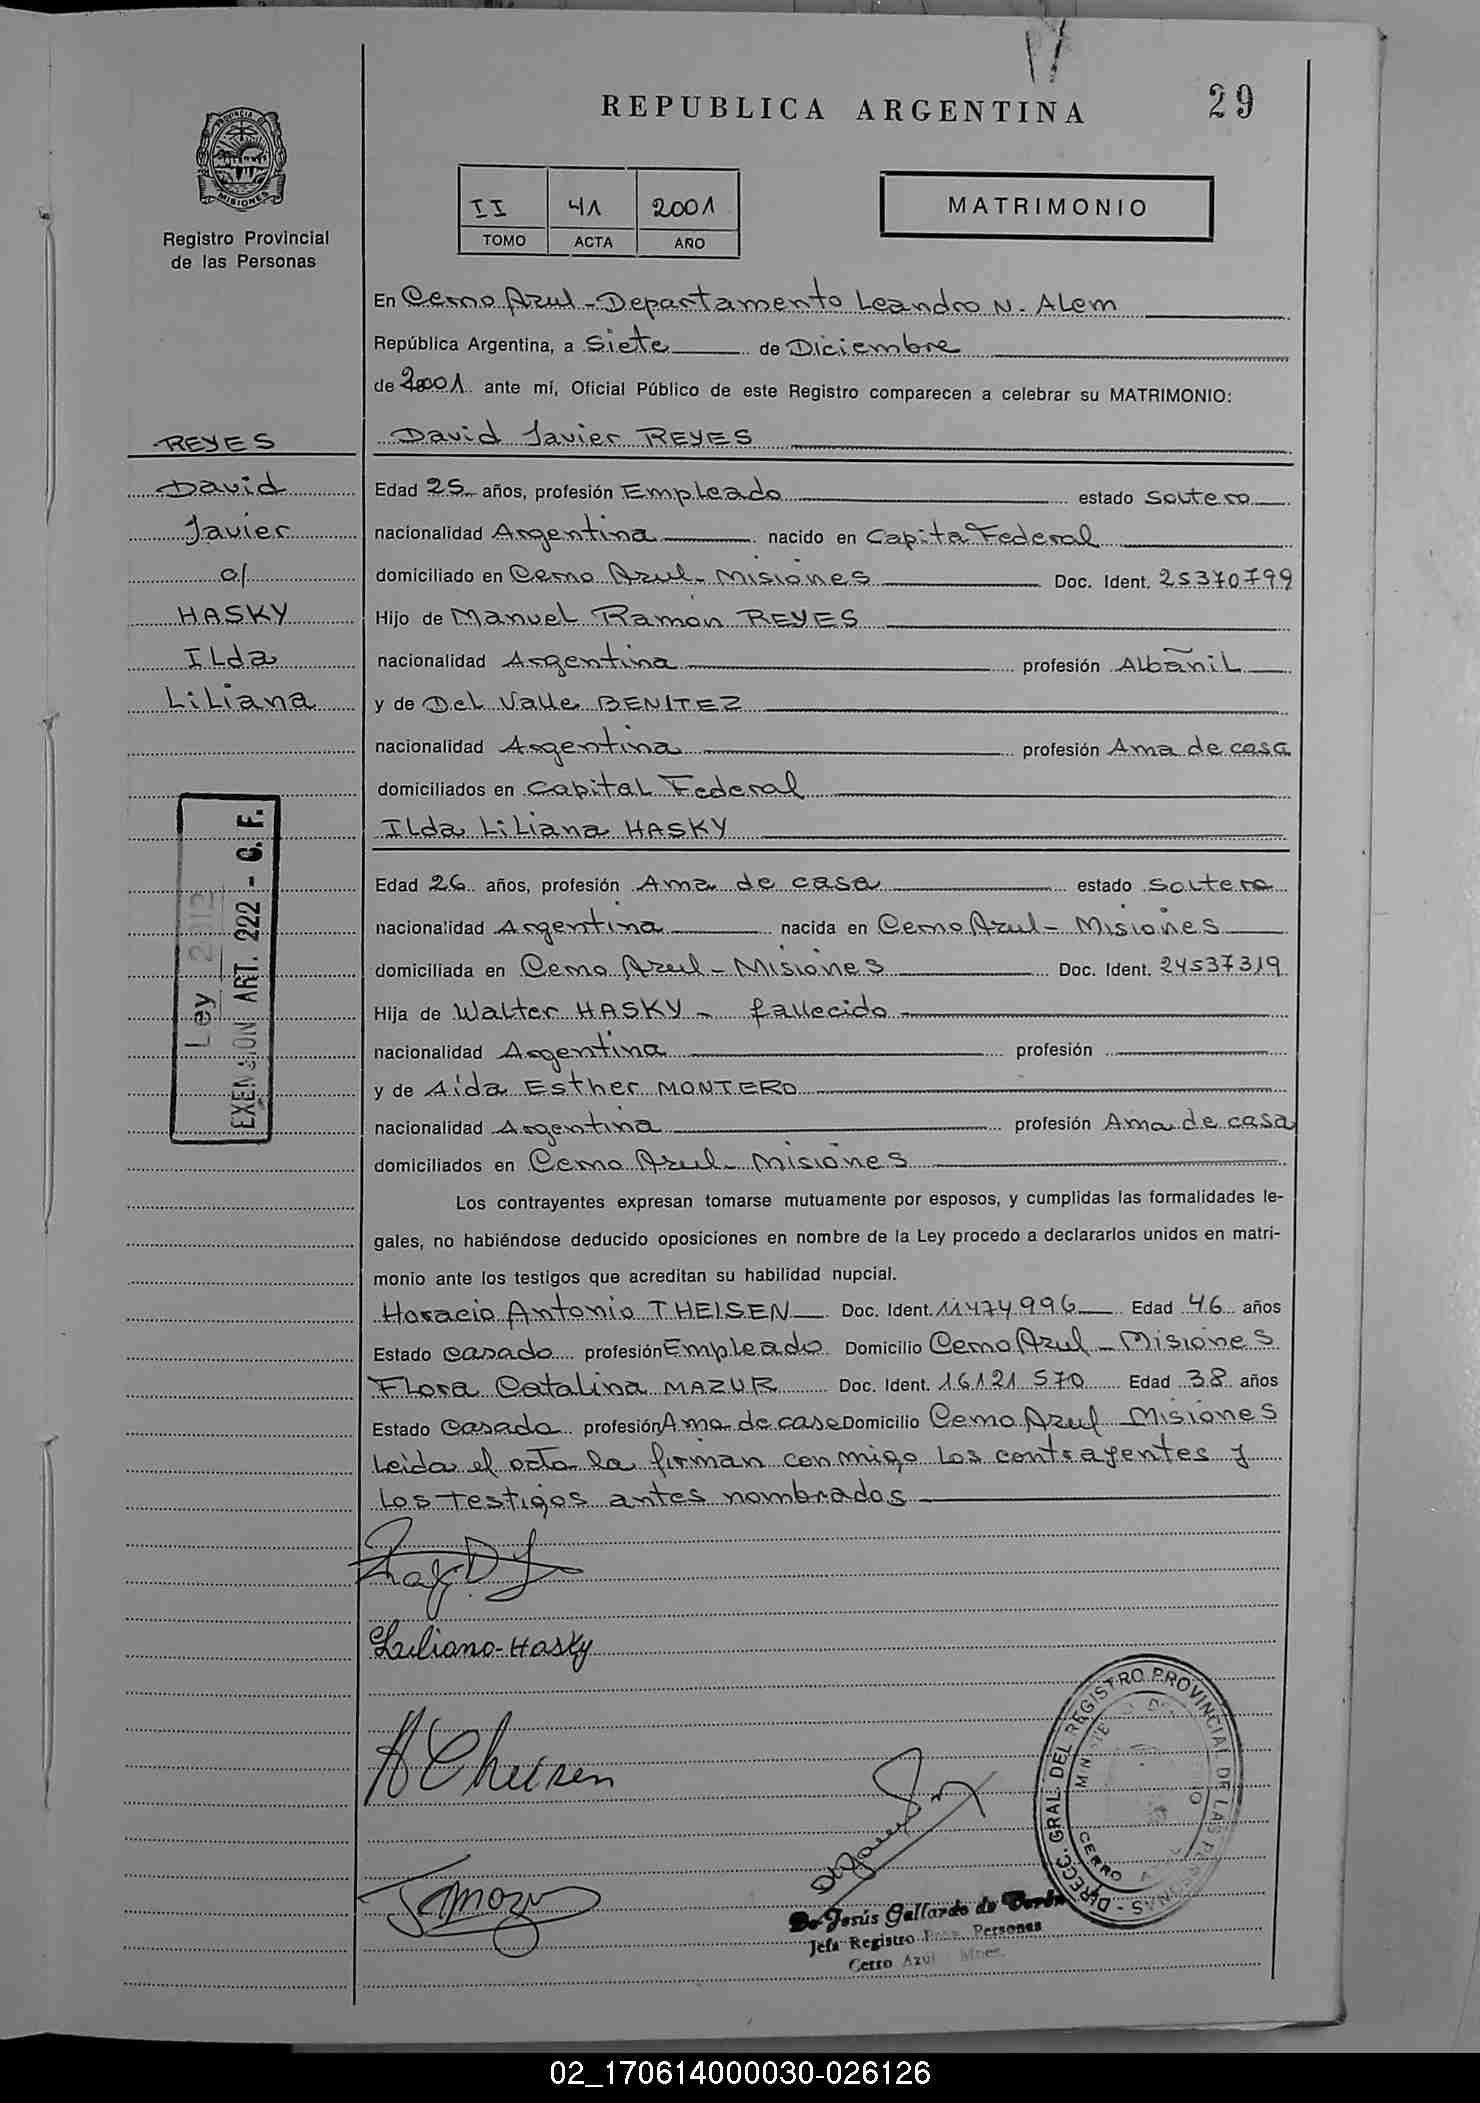 29
REPUBLICA ARGENTINA
PROVINCIA DE
MISIONES
Registro Provincial
de las Personas
II 41 2001
TOMO ACTA AÑO
MATRIMONIO
En Cerro Azul - Departamento Leandro N. Alem
República Argentina, a Siete de Diciembre
de 2001 ante mí, Oficial Público de este Registro comparecen a celebrar su MATRIMONIO:
REYES
David
Javier
c/
HASKY
ILda
LiLiana
Ley
EXENSION ART. 222 - C. F.
David Javier REYES
Edad 25 años, profesión EmpLeado estado soltero
nacionalidad Argentina nacido en Capita Federal
domiciliado en Cerro Azul - Misiones Doc. Ident. 25370799
Hijo de Manuel Ramón REYES
nacionalidad Argentina profesión ALbañiL
y de Del Valle BENITEZ
nacionalidad Argentina profesión Ama de casa
domiciliados en Capital Federal
ILda LiLiana HASKY
Edad 26 años, profesión Ama de casa estado soltera
nacionalidad Argentina nacida en Cerro Azul - Misiones
domiciliada en Cerro Azul - Misiones Doc. Ident. 24537319
Hija de Walter HASKY - fallecido
nacionalidad Argentina profesión
y de Aída Esther MONTERO
nacionalidad Argentina profesión Ama de casa
domiciliados en Cerro Azul - Misiones
Los contrayentes expresan tomarse mutuamente por esposos, y cumplidas las formalidades le-
gales, no habiéndose deducido oposiciones en nombre de la Ley procedo a declararlos unidos en matri-
monio ante los testigos que acreditan su habilidad nupcial.
Horacio Antonio THEISEN Doc. Ident. 11474996 Edad 46 años
Estado casado profesión Empleado Domicilio Cerro Azul - Misiones
Flora Catalina MAZUR Doc. Ident. 16121570 Edad 38 años
Estado casada profesión Ama de casa Domicilio Cerro Azul - Misiones
Leida el acta la firman conmigo los contrayentes y
Los testigos antes nombrados
Liliana Hasky
DIRECC. GRAL. DEL REGISTRO PROVINCIAL DE LAS PERSONAS
CERRO
De Jesús Gallardo de
Jefa Registro Personas
Cerro Azul Mnes.
02_170614000030-026126